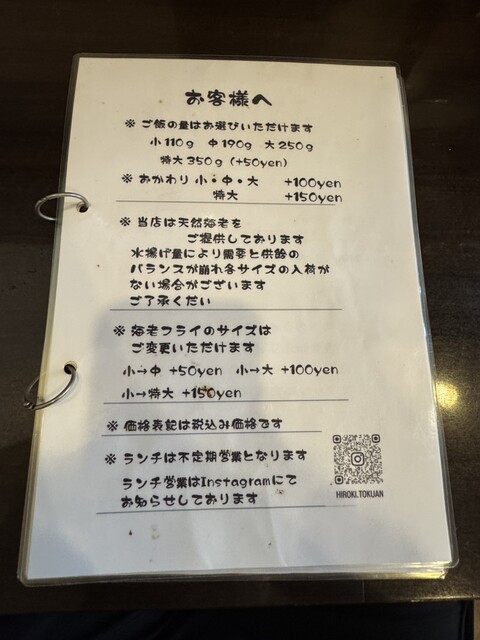 お客様へ
※ ご飯の量はお選びいただけます
小110g 中190g 大250g
特大350g (+50yen)
※ おかわり 小・中・大 +100yen
特大 +150yen
※ 当店は天然海老を
ご提供しております
水揚げ量により需要と供給の
バランスが崩れ各サイズの入荷が
ない場合がございます
ご了承くだい
※ 海老フライのサイズは
ご変更いただけます
小→中 +50yen 小→大 +100yen
小→特大 +150yen
※ 価格表記は税込み価格です
※ ランチは不定期営業となります
ランチ営業はInstagramにて
お知らせしております
HIROKI.TOKUAN